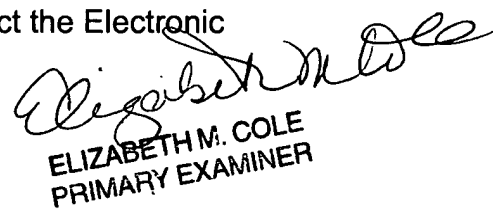 ct the Electronic
Elizabeth M. Cole
ELIZABETH M. COLE
PRIMARY EXAMINER